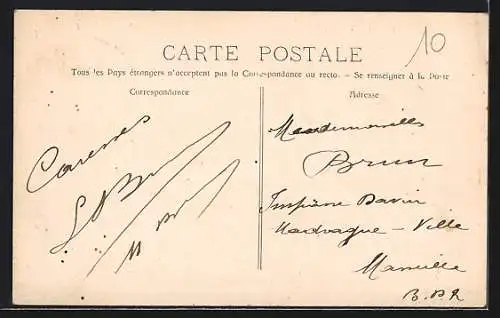 10
CARTE POSTALE
Tous les Pays étrangers n'acceptent pas la Correspondance au recto. - Se renseigner à la Poste
Correspondance
Adresse
Mesdemoiselles
Caresses
Brun
Impasse
Ville
Marseille
B.D.R